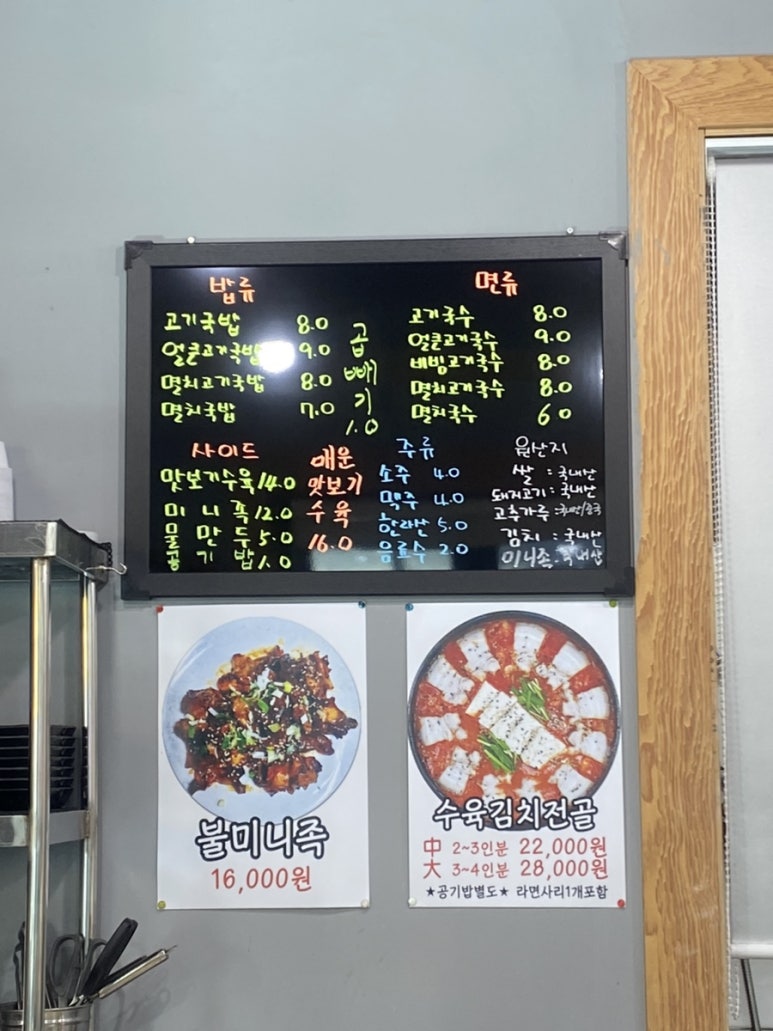 밥류
고기국밥 8.0
얼큰고기국밥 9.0
멸치고기국밥 8.0
멸치국밥 7.0
곱
빼
기
1.0
면류
고기국수 8.0
얼큰고기국수 9.0
비빔고기국수 8.0
멸치고기국수 8.0
멸치국수 6.0
사이드
맛보기수육 14.0
미니족 12.0
물만두 5.0
공기밥 1.0
매운
맛보기
수육
16.0
주류
소주 4.0
맥주 4.0
한라산 5.0
음료수 2.0
원산지
쌀 : 국내산
돼지고기 : 국내산
고추가루 :
김치 : 국내산
미니족 : 국내산
불미니족
16,000원
수육김치전골
中 2~3인분 22,000원
大 3~4인분 28,000원
★공기밥별도★ 라면사리1개포함